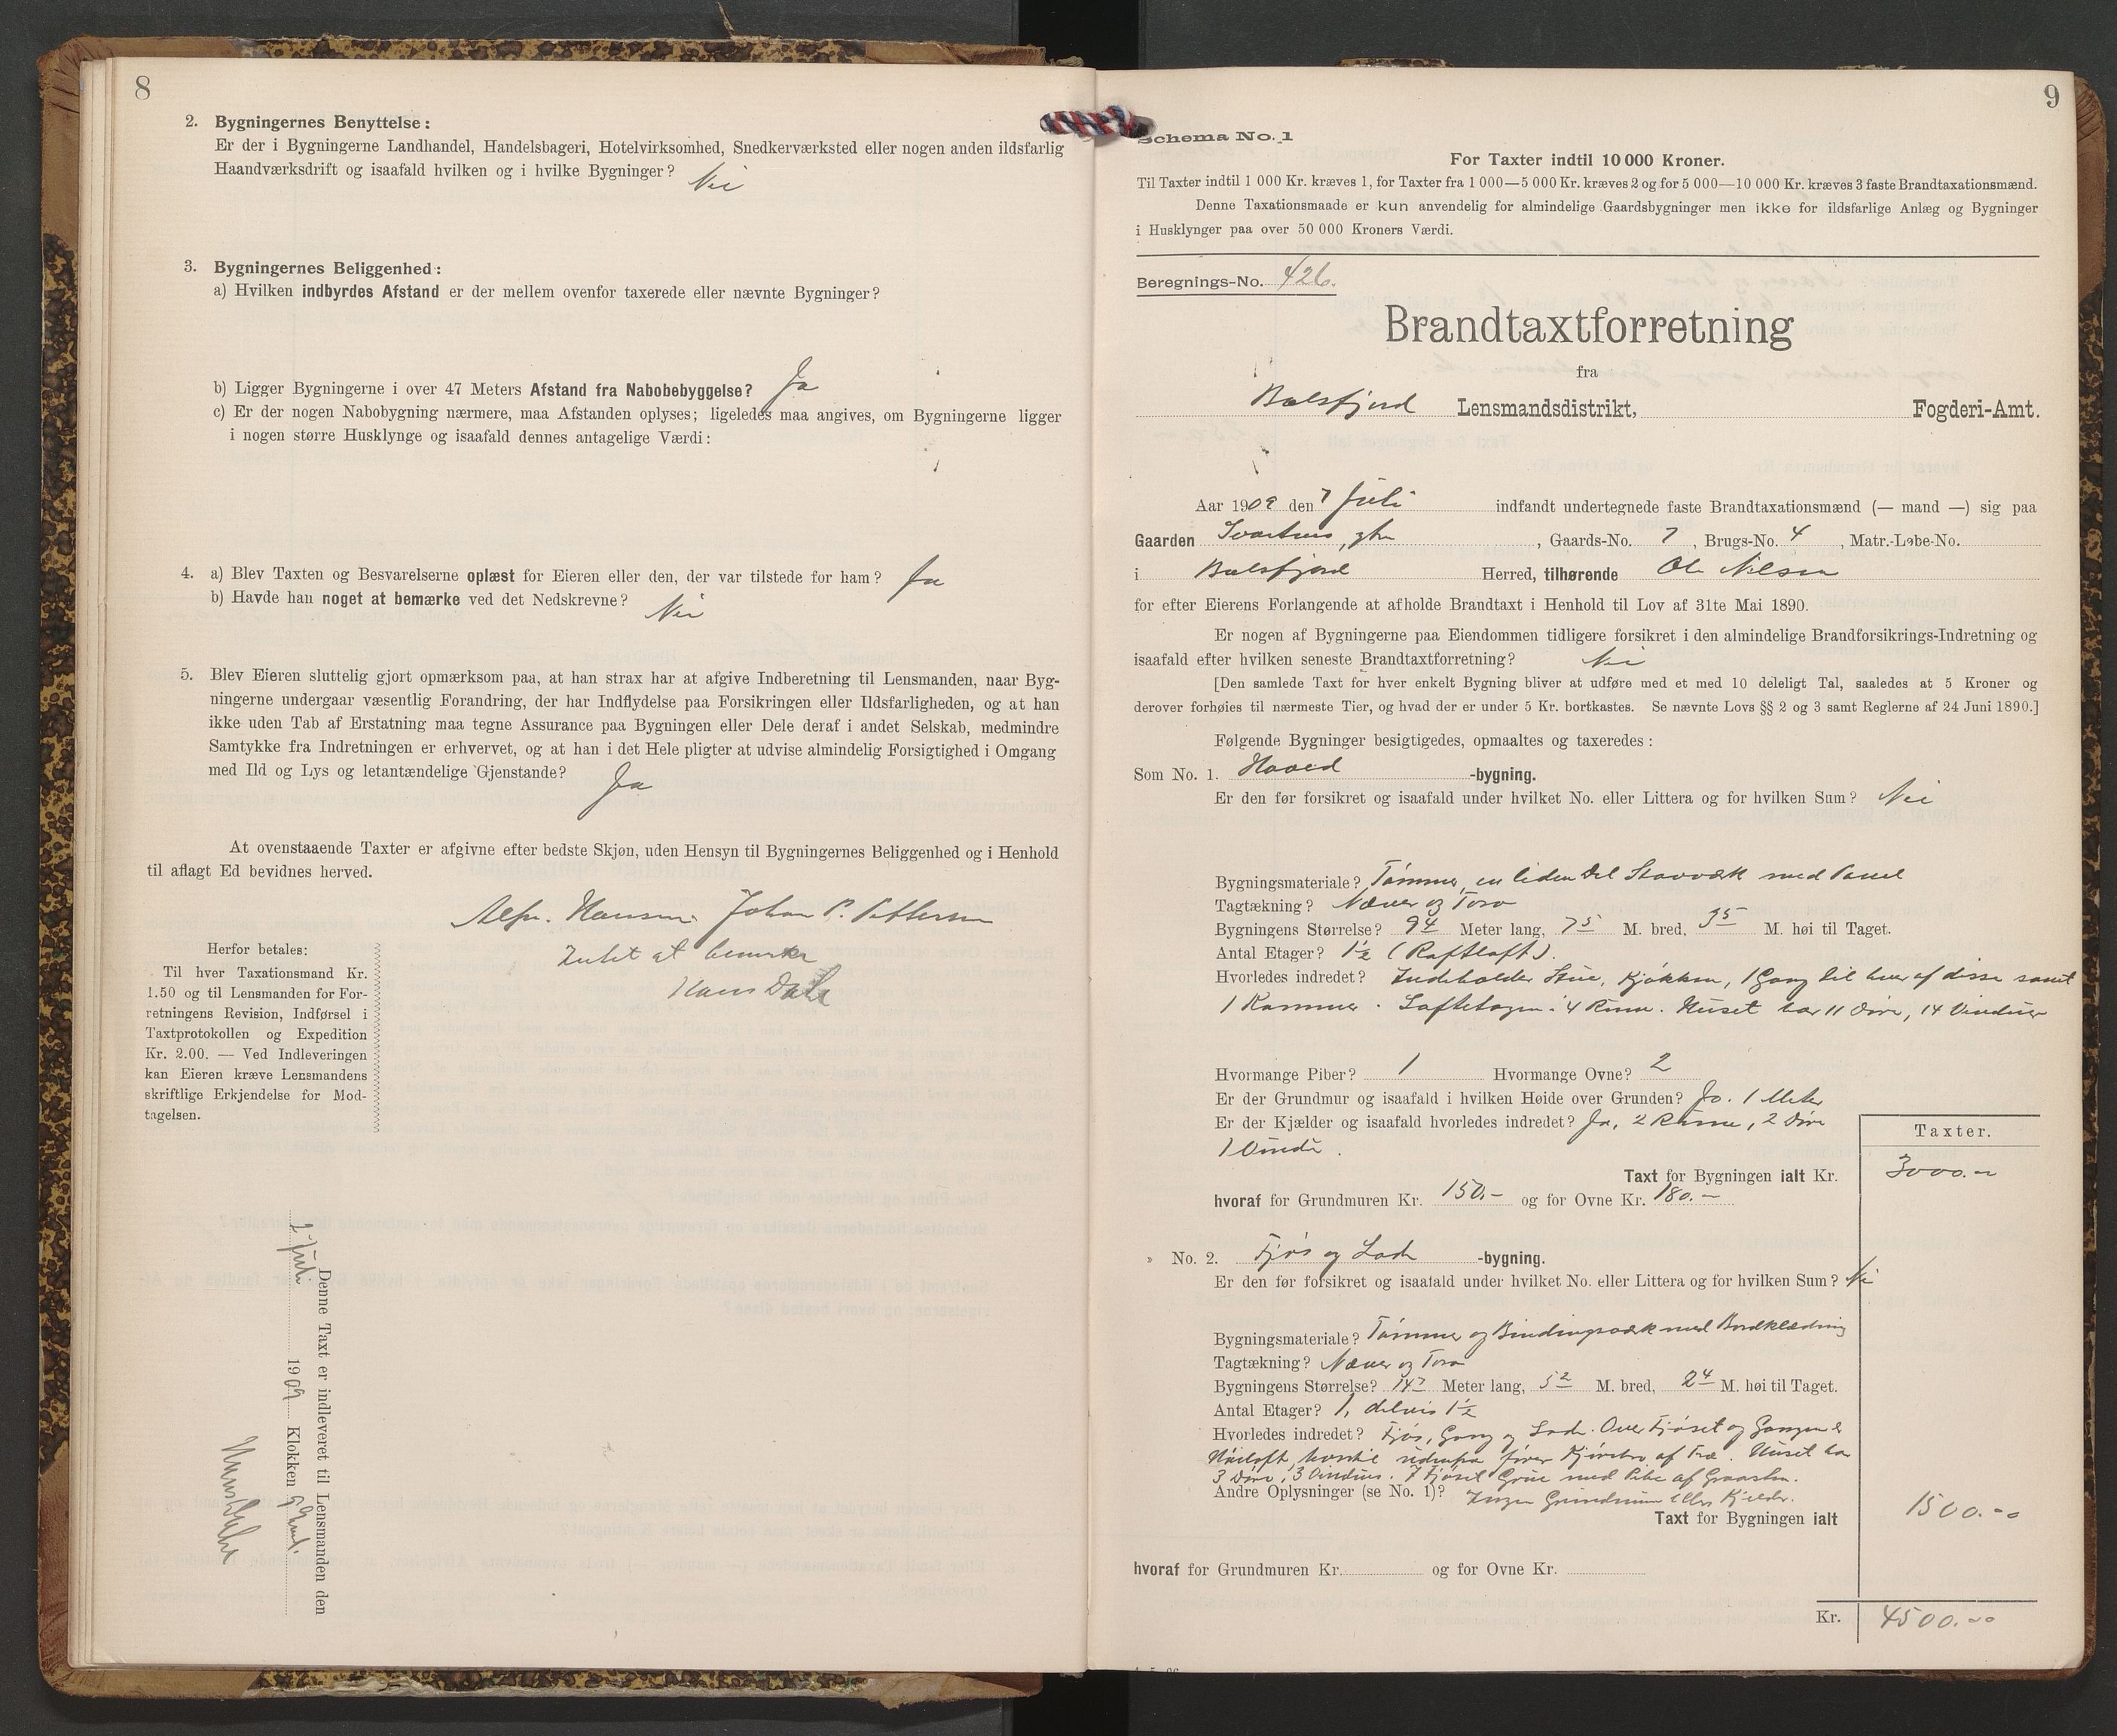 8
2. Bygningernes Benyttelse:
Er der i Bygningerne Landhandel, Handelsbageri, Hotelvirksomhed, Snedkerværksted eller nogen anden ildsfarlig
Haandværksdrift og isaafald hvilken og i hvilke Bygninger? Nei
3. Bygningernes Beliggenhed:
a) Hvilken indbyrdes Afstand er der mellem ovenfor taxerede eller nævnte Bygninger?
b) Ligger Bygningerne i over 47 Meters Afstand fra Nabobebyggelse? Ja
c) Er der nogen Nabobygning nærmere, maa Afstanden oplyses; ligeledes maa angives, om Bygningerne ligger
i nogen større Husklynge og isaafald dennes antagelige Værdi:
4. a) Blev Taxten og Besvarelserne oplæst for Eieren eller den, der var tilstede for ham? Ja
b) Havde han noget at bemærke ved det Nedskrevne? Nei
5. Blev Eieren sluttelig gjort opmærksom paa, at han strax har at afgive Indberetning til Lensmanden, naar Byg-
ningerne undergaar væsentlig Forandring, der har Indflydelse paa Forsikringen eller Ildsfarligheden, og at han
ikke uden Tab af Erstatning maa tegne Assurance paa Bygningen eller Dele deraf i andet Selskab, medmindre
Samtykke fra Indretningen er erhvervet, og at han i det Hele pligter at udvise almindelig Forsigtighed i Omgang
med Ild og Lys og letantændelige Gjenstande? Ja
At ovenstaaende Taxter er afgivne efter bedste Skjøn, uden Hensyn til Bygningernes Beliggenhed og i Henhold
til aflagt Ed bevidnes herved.
Alfr. Hansen. Johan P. Pettersen
Intet at bemerke
Hans Dahl
Herfor betales:
Til hver Taxationsmand Kr.
1.50 og til Lensmanden for For-
retningens Revision, Indførsel i
Taxtprotokollen og Expedition
Kr. 2.00. — Ved Indleveringen
kan Eieren kræve Lensmandens
skriftlige Erkjendelse for Mod-
tagelsen.
Denne Taxt er indleveret til Lensmanden den
Juli 1909 Klokken
Hans Dahl
9
Schema No. 1
For Taxter indtil 10 000 Kroner.
Til Taxter indtil 1 000 Kr. kræves 1, for Taxter fra 1 000—5 000 Kr. kræves 2 og for 5 000—10 000 Kr. kræves 3 faste Brandtaxationsmænd.
Denne Taxationsmaade er kun anvendelig for almindelige Gaardsbygninger men ikke for ildsfarlige Anlæg og Bygninger
i Husklynger paa over 50 000 Kroners Værdi.
Beregnings-No. 426.
Brandtaxtforretning
fra
Balsfjord Lensmandsdistrikt, Fogderi-Amt.
Aar 1909 den 7 Juli indfandt undertegnede faste Brandtaxationsmænd (— mand —) sig paa
Gaarden Svartnes, , Gaards-No. 7, Brugs-No. 4, Matr.-Løbe-No.
i Balsfjord Herred, tilhørende Ole Nilsen
for efter Eierens Forlangende at afholde Brandtaxt i Henhold til Lov af 31te Mai 1890.
Er nogen af Bygningerne paa Eiendommen tidligere forsikret i den almindelige Brandforsikrings-Indretning og
isaafald efter hvilken seneste Brandtaxtforretning? Nei
[Den samlede Taxt for hver enkelt Bygning bliver at udføre med et med 10 deleligt Tal, saaledes at 5 Kroner og
derover forhøies til nærmeste Tier, og hvad der er under 5 Kr. bortkastes. Se nævnte Lovs §§ 2 og 3 samt Reglerne af 24 Juni 1890.]
Følgende Bygninger besigtigedes, opmaaltes og taxeredes:
Som No. 1. Hoved -bygning.
Er den før forsikret og isaafald under hvilket No. eller Littera og for hvilken Sum? Nei
Bygningsmateriale? Tømmer, en liden Del Stavværk med Panel
Tagtækning? Næver og Torv
Bygningens Størrelse? 9 4 Meter lang, 7 5 M. bred, 3 5 M. høi til Taget.
Antal Etager? 1½ (Raftloft).
Hvorledes indredet? Indeholder Stue, Kjøkken, 1 Gang til hver af disse samt
1 Kammer. Loftetagen: 4 Rum. Huset har 11 Døre, 14 Vinduer
Hvormange Piber? 1 Hvormange Ovne? 2
Er der Grundmur og isaafald i hvilken Høide over Grunden? Ja. 1 Meter
Er der Kjælder og isaafald hvorledes indredet? Ja, 2 Rumme, 2 Døre
1 Vindu.
Taxter.
Taxt for Bygningen ialt Kr. 3000.-
hvoraf for Grundmuren Kr. 150.- og for Ovne Kr. 180.-
» No. 2. Fjøs og Lade -bygning.
Er den før forsikret og isaafald under hvilket No. eller Littera og for hvilken Sum? Nei
Bygningsmateriale? Tømmer og Bindingsværk med Bordklædning
Tagtækning? Næver og Torv
Bygningens Størrelse? 14 7 Meter lang, 5 2 M. bred, 2 4 M. høi til Taget.
Antal Etager? 1, delvis 1½
Hvorledes indredet? Fjøs, Gang og Lade. Over Fjøset og Gangen er
Høiloft, hvortil udenfra fører Kjørebro af Træ. Huset har
3 Døre, 3 Vinduer. I Fjøset Grue med Pibe af Graasten.
Andre Oplysninger (se No. 1)? Ingen Grundmur eller Kjelder.
Taxt for Bygningen ialt 1500.-
hvoraf for Grundmuren Kr. og for Ovne Kr.
Kr. 4500.-